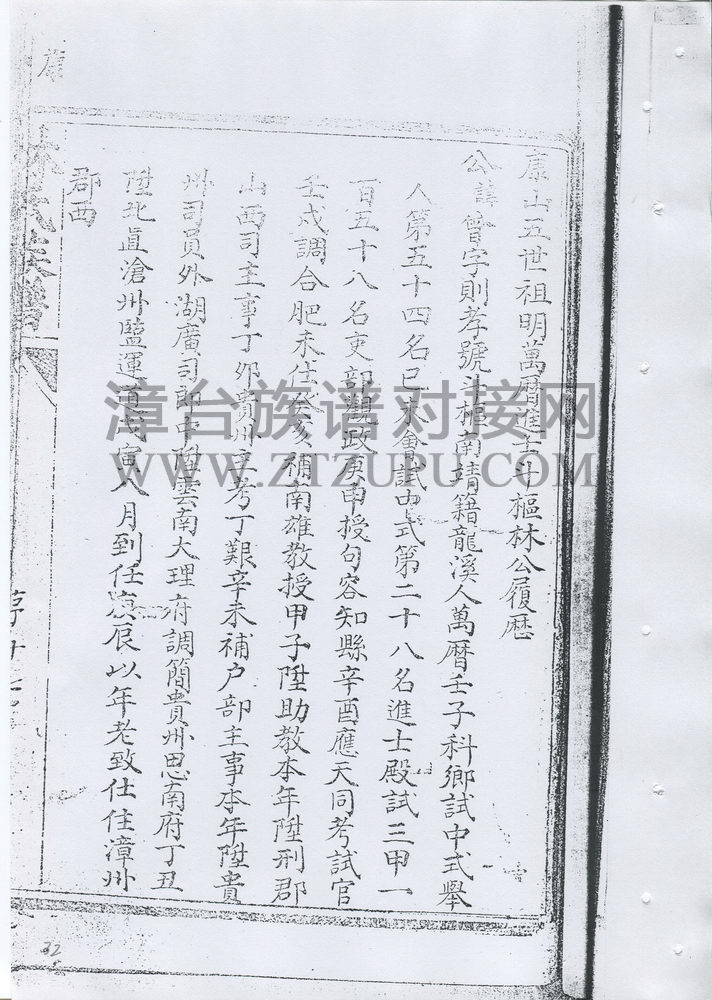 康山五世祖明萬曆進士斗樞林公履歷
公諱曾字則孝號斗樞南靖籍龍溪人萬曆壬子科鄉試中式舉
人第五十四名己未會試中式第二十八名進士殿試三甲一
百五十八名吏部觀政庚申授句容知縣辛酉應天同考試官
壬戌調合肥未任癸亥補南雄教授甲子陞助教本年陞刑部
山西司主事丁卯貴州主考丁艱辛未補户部主事本年陞貴
州司員外湖廣司郎中陞雲南大理府調簡貴州思南府丁丑
陞北直滄州鹽運道戊寅八月到任庚辰以年老致仕住漳州
郡西
林氏族譜
康
32
漳台族谱对接网
WWW.ZTZUPU.COM